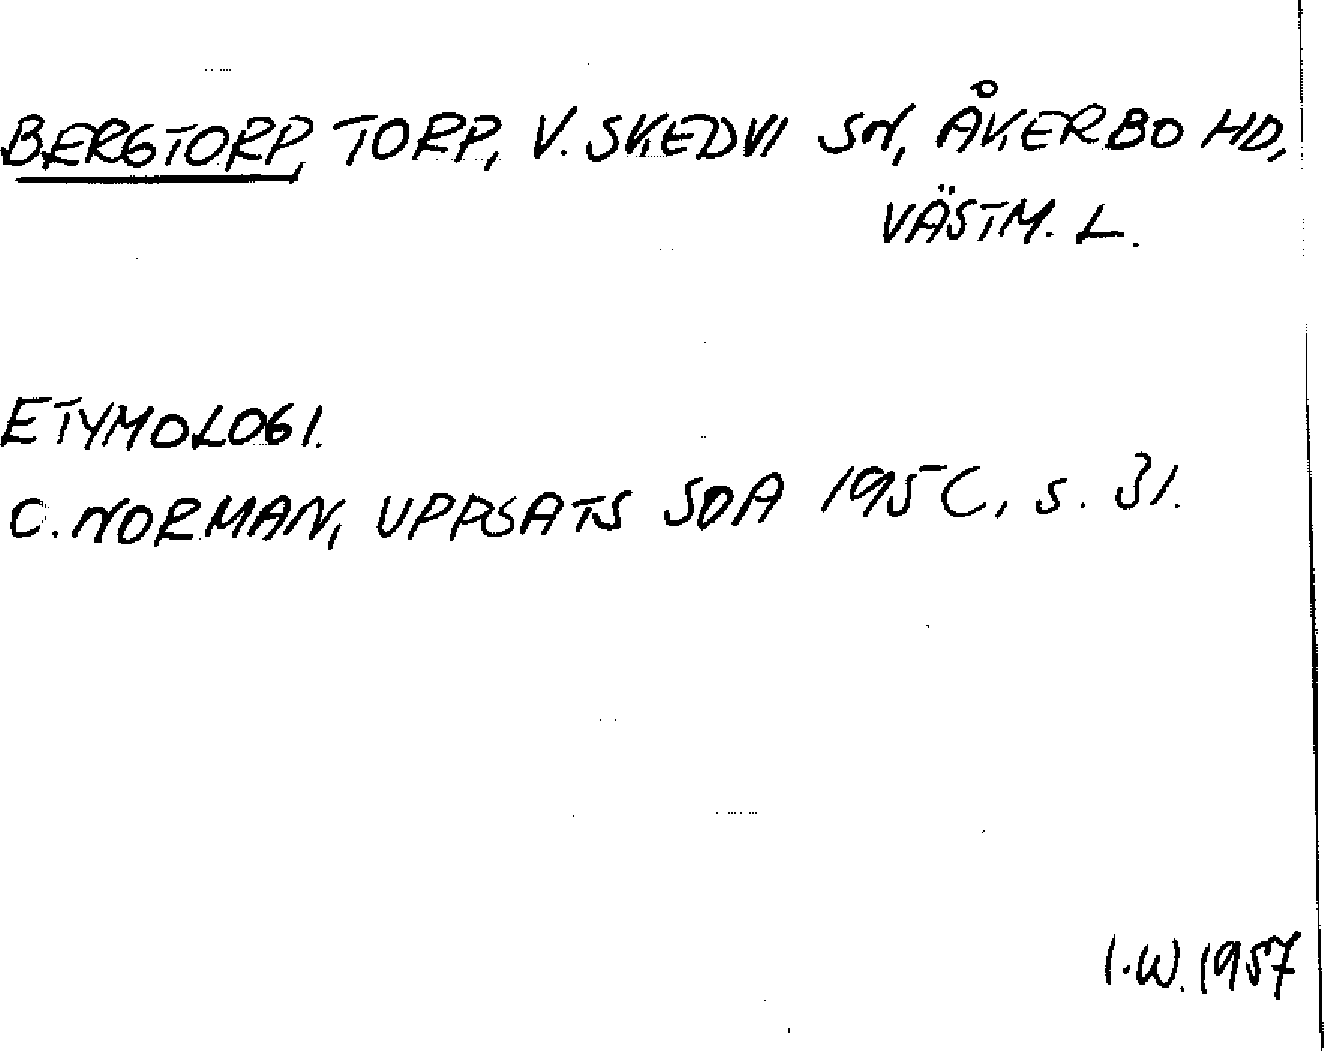 BERGTORP, TORP, V. SKEDVI SN, ÅKERBO HD,
VÄSTM. L.
ETYMOLOGI.
C. NORMAN, UPPSATS SOA 1950, s. 31.
I.W. 1957